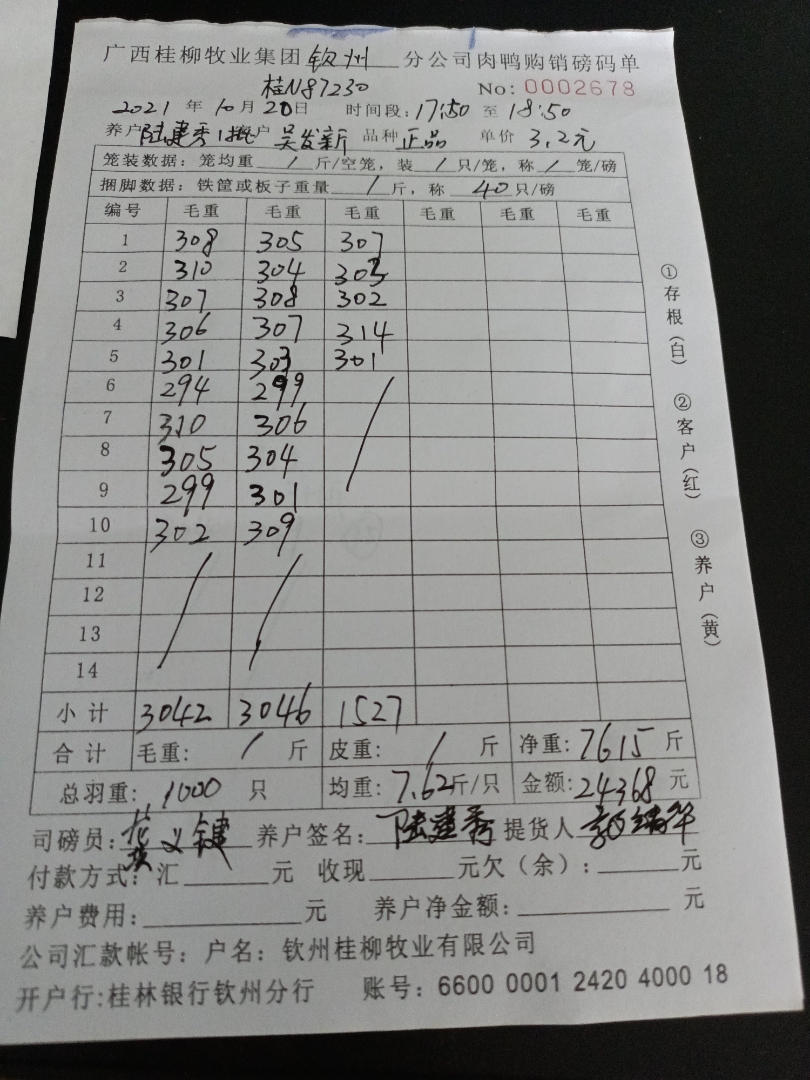 广西桂柳牧业集团 钦州 分公司肉鸭购销磅码单
桂N87230 No: 0002678
2021 年 10 月 20 日 时间段: 17:50 至 18:50
养户 陆建秀 户 吴发新 品种 正品 单价 3.2元
笼装数据: 笼均重 / 斤/空笼, 装 / 只/笼, 称 / 笼/磅
捆脚数据: 铁筐或板子重量 / 斤, 称 40 只/磅
编号 毛重 毛重 毛重 毛重 毛重
1 308 305 307
2 310 304 303
3 307 308 302
4 306 307 314
5 301 303 301
6 294 299 /
7 310 306
8 305 304
9 299 301
10 302 309
11 / /
12
13
14
小计 3042 3046 1527
合计 毛重: / 斤 皮重: / 斤 净重: 7615 斤
总羽重: 1000 只 均重: 7.62 斤/只 金额: 24368 元
司磅员: 义键 养户签名: 陆建秀 提货人
付款方式: 汇 元 收现 元欠(余): 元
养户费用: 元 养户净金额: 元
公司汇款帐号: 户名: 钦州桂柳牧业有限公司
开户行:桂林银行钦州分行 账号: 6600 0001 2420 4000 18
①存根(白)
②客户(红)
③养户(黄)